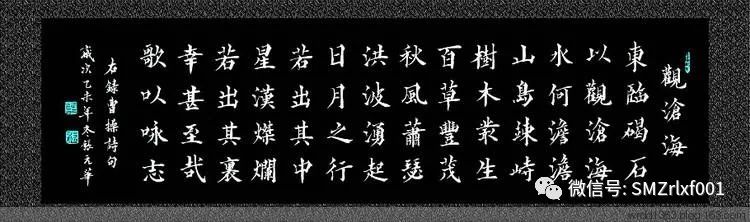 觀滄海
東臨碣石
以觀滄海
水何澹澹
山島竦峙
樹木叢生
百草豐茂
秋風蕭瑟
洪波湧起
日月之行
若出其中
星漢燦爛
若出其裏
幸甚至哉
歌以咏志
右錄曹操詩句
歲次乙未年冬張元華
微信号: SMZrlxf001